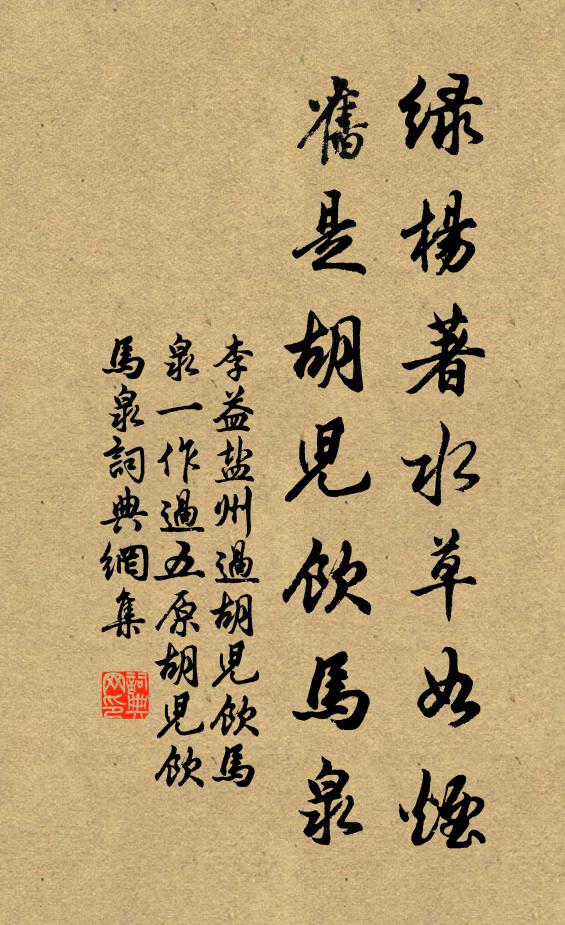 緑楊著水草如煙
舊是胡兒飲馬泉
李益盐州過胡兒飲馬
泉一作過五原胡兒飲
馬泉詞典網集
詞典
网印